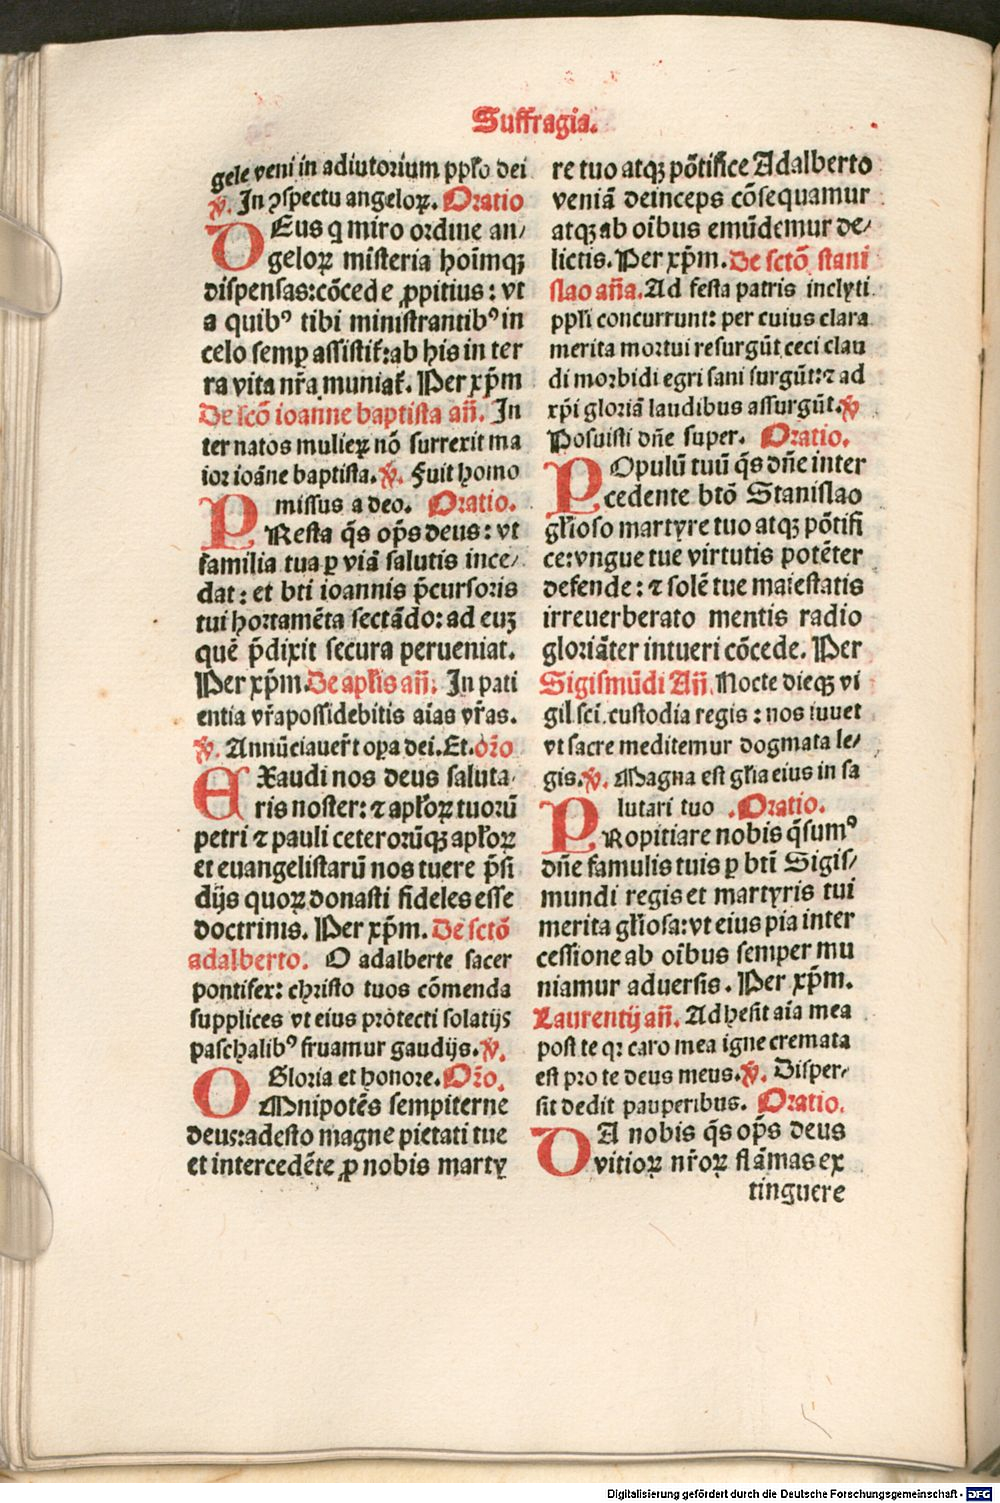 Suffragia.
gele veni in adiutorium ppl̄o dei
℣. In ꝯspectu angeloꝝ. Oratio
DEus q miro ordine an⸗
geloꝝ misteria hoīmqꝫ
dispensas: cōcede ꝓpitius: vt
a quibꝰ tibi ministrantibꝰ in
celo semꝑ assistit̄: ab his in ter
ra vita nr̄a muniat̄. Per xp̄m
De scō ioanne baptista an̄. In
ter natos mulieꝝ nō surrexit ma
ior ioāne baptista. ℣. Fuit homo
missus a deo. Oratio.
PResta q̄s op̄s deus: vt
familia tua ꝑ viā salutis ince⸗
dat: et bti ioannis p̄cursoris
tui hortamēta sectādo: ad euꝫ
quē p̄dixit secura perueniat.
Per xp̄m. De apl̄is an̄. In pati
entia vr̄a possidebitis aīas vr̄as.
℣. Annūciauer̄t oꝑa dei. Et. or̄o
EXaudi nos deus saluta⸗
ris noster: ⁊ apl̄oꝝ tuorū
petri ⁊ pauli ceterorūqꝫ apl̄oꝝ
et euangelistarū nos tuere p̄si
dijs quoꝝ donasti fideles esse
doctrinis. Per xp̄m. De sctō
adalberto. O adalberte sacer
pontifex: christo tuos cōmenda
supplices vt eius protecti solatijs
paschalibꝰ fruamur gaudijs. ℣.
Gloria et honore. Or̄o.
OMnipotēs sempiterne
deus: adesto magne pietati tue
et intercedēte ꝓ nobis marty
re tuo atqꝫ pōtifice Adalberto
veniā deinceps cōsequamur
atqꝫ ab oībus emūdemur de⸗
lictis. Per xp̄m. De sctō stani
slao an̄a. Ad festa patris inclyti
ppl̄i concurrunt: per cuius clara
merita mortui resurgūt ceci clau
di morbidi egri sani surgūt: ⁊ ad
xp̄i gloriā laudibus assurgūt. ℣
Posuisti dn̄e super. Oratio.
POpulū tuū q̄s dn̄e inter
cedente btō Stanislao
gl̄ioso martyre tuo atqꝫ pōtifi
ce: vngue tue virtutis potēter
defende: ⁊ solē tue maiestatis
irreuerberato mentis radio
gloriāter intueri cōcede. Per
Sigismūdi An̄. Nocte dieqꝫ vi
gil sci custodia regis: nos iuuet
vt sacre meditemur dogmata le⸗
gis. ℣. Magna est gl̄ia eius in sa
lutari tuo. Oratio.
PRopitiare nobis q̄sumꝰ
dn̄e famulis tuis ꝑ btī Sigis⸗
mundi regis et martyris tui
merita gl̄iosa: vt eius pia inter
cessione ab oībus semper mu
niamur aduersis. Per xp̄m.
Laurentij an̄. Adhesit aīa mea
post te qꝛ caro mea igne cremata
est pro te deus meus. ℣. Disper⸗
sit dedit pauperibus. Oratio.
DA nobis q̄s op̄s deus
vitioꝝ nr̄oꝝ flāmas ex
tinguere
Digitalisierung gefördert durch die Deutsche Forschungsgemeinschaft - DFG